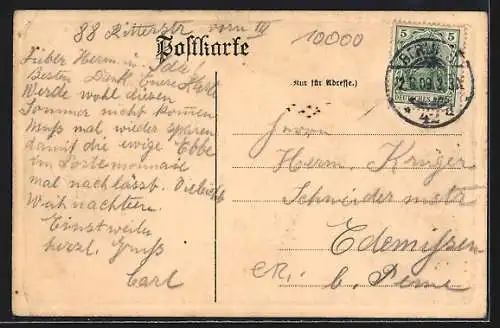 88 Ritterstr vorn III
10000
Postkarte
(Nur für Adresse.)
5 5
DEUTSCHES REICH
42
Lieber Herm. u. Ida!
Besten Dank Eurer Karte
Werde wohl diesen
Sommer nicht kommen
Muss mal wieder sparen
damit die ewige Ebbe
im Portemonnaie
mal nachlässt. Vieleicht
Weihnachten.
Einstweilen
herzl. Gruss
Carl
Herrn
Herm. Krüger
Schneidermstr
Edemissen
b. Peine